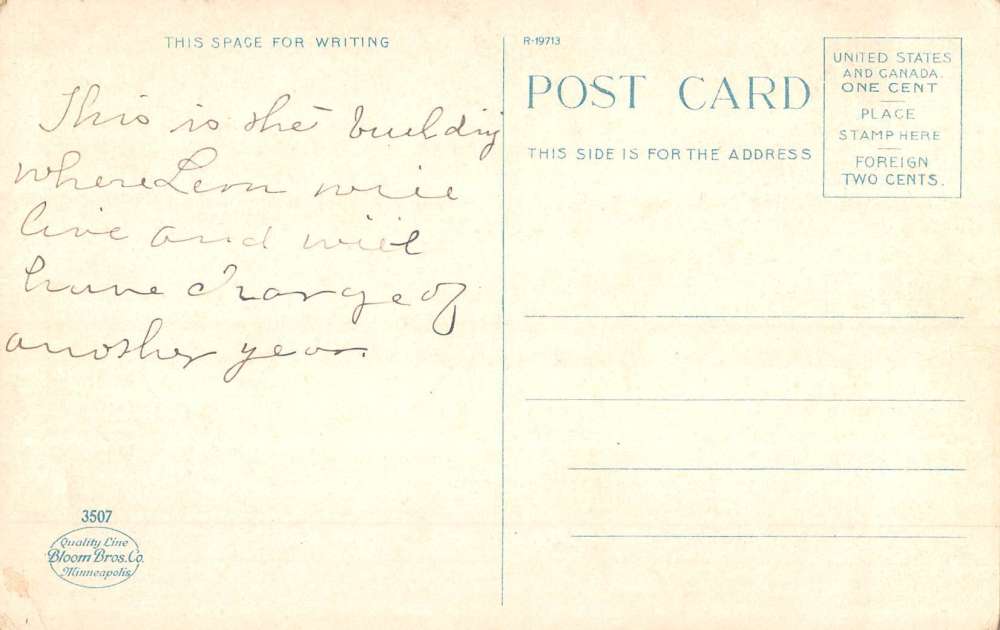 THIS SPACE FOR WRITING
This is the building
where Leon will
live and will
have charge of
another year.
3507
Quality Line
Bloom Bros. Co.
Minneapolis
R-19713
POST CARD
THIS SIDE IS FOR THE ADDRESS
UNITED STATES
AND CANADA.
ONE CENT
PLACE
STAMP HERE
FOREIGN
TWO CENTS.